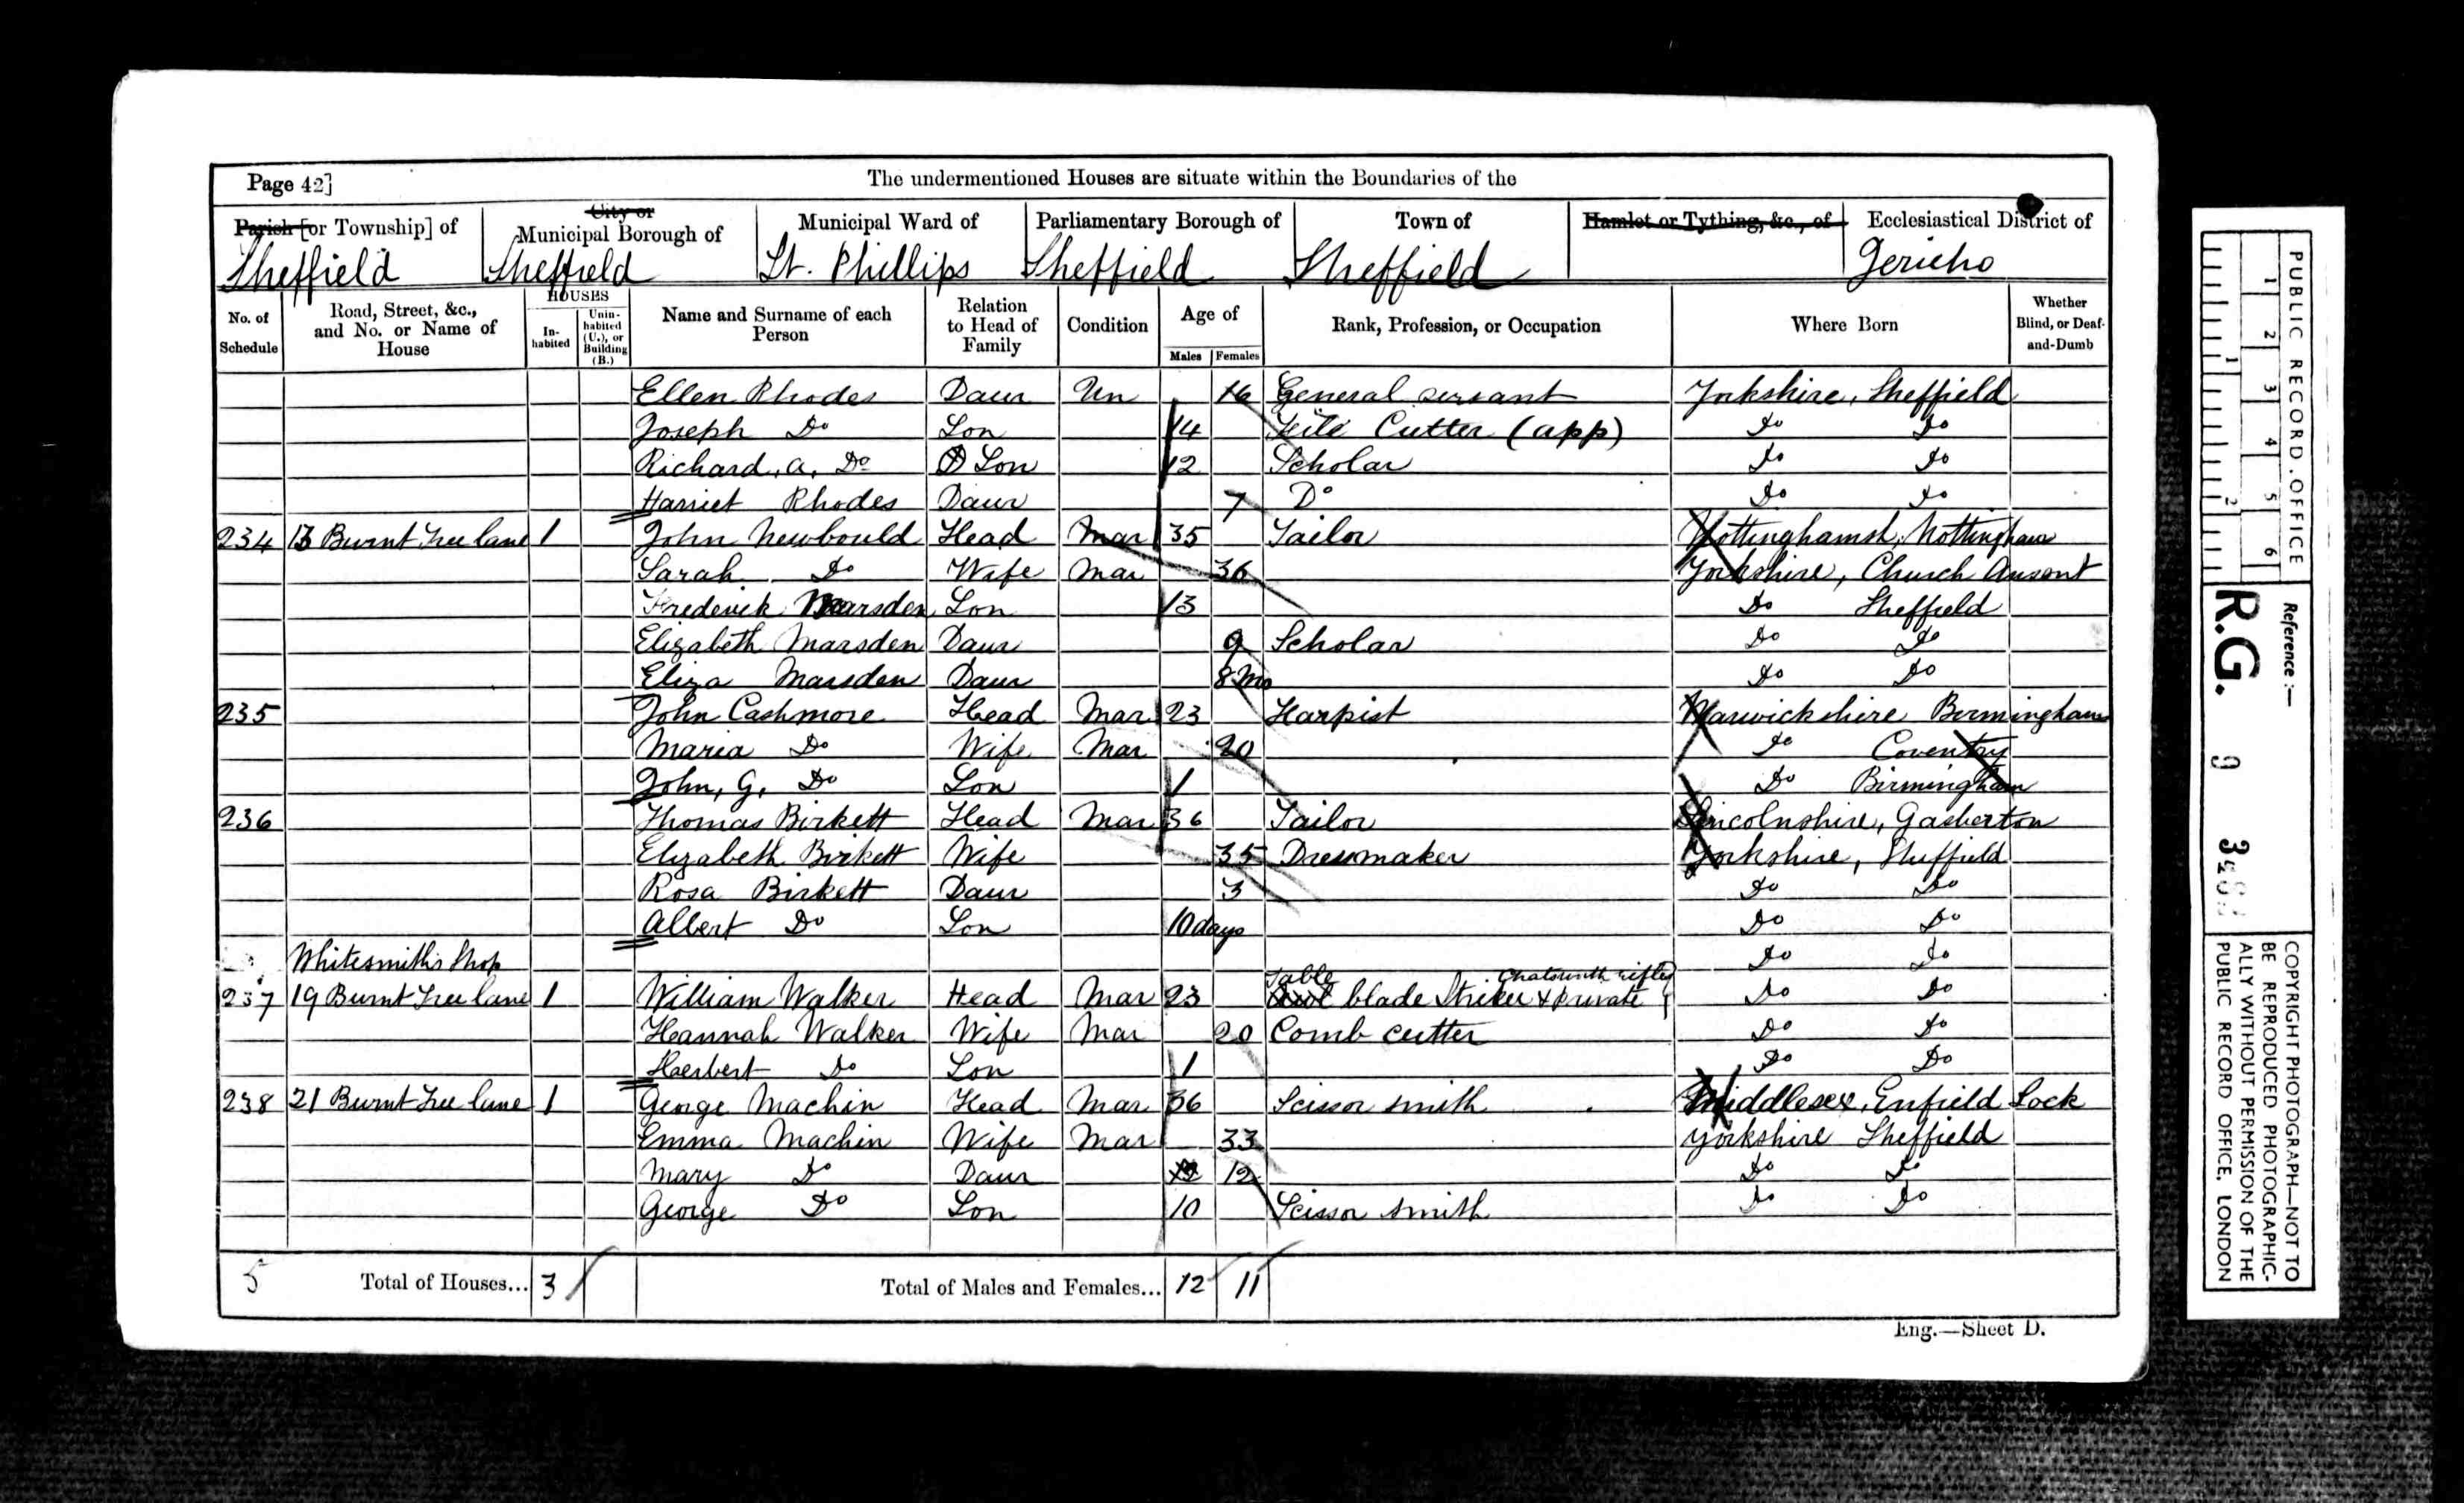 Page 42]
The undermentioned Houses are situate within the Boundaries of the
Parish [or Township] of
City or Municipal Borough of
Municipal Ward of
Parliamentary Borough of
Town of
Hamlet or Tything, &c., of
Ecclesiastical District of
Sheffield Sheffield St. Phillips Sheffield Sheffield Jericho
No. of Schedule
Road, Street, &c., and No. or Name of House
HOUSES
In-habited
Unin-habited (U.), or Building (B.)
Name and Surname of each Person
Relation to Head of Family
Condition
Age of
Males Females
Rank, Profession, or Occupation
Where Born
Whether Blind, or Deaf-and-Dumb
Ellen Rhodes Daur Un 16 General servant Yorkshire, Sheffield
Joseph Do Son 14 Cutter (app) Do Do
Richard, A, Do Son 12 Scholar Do Do
Harriet Rhodes Daur 7 Do Do Do
234 13 Burnt Tree lane 1 John Newbould Head Mar 35 Tailor Nottinghamsh, Nottingham
Sarah Do Wife Mar 36 Yorkshire, Church
Frederick Marsden Son 13 Do Sheffield
Elizabeth Marsden Daur 9 Scholar Do Do
Eliza Marsden Daur 8 Mo Do Do
235 John Cashmore Head Mar 23 Harpist Warwickshire Bermingham
Maria Do Wife Mar 20 Do Coventry
John, G, Do Son 1 Do Birmingham
236 Thomas Birkett Head Mar 36 Tailor Lincolnshire, Gosberton
Elizabeth Birkett Wife 35 Dressmaker Yorkshire, Sheffield
Rosa Birkett Daur 3 Do Do
Albert Do Son 10 days Do Do
Whitesmith's Shop Do Do
237 19 Burnt Tree lane 1 William Walker Head Mar 23 Table blade Striker & private Chatsworth rifles Do Do
Hannah Walker Wife Mar 20 Comb cutter Do Do
Herbert Do Son 1 Do Do
238 21 Burnt Tree lane 1 George Machin Head Mar 36 Scissor smith Middlesex, Enfield Lock
Emma Machin Wife Mar 33 Yorkshire Sheffield
Mary Do Daur 12 Do Do
George Do Son 10 Scissor smith Do Do
5 Total of Houses... 3 Total of Males and Females... 12 11
Eng.—Sheet D.
PUBLIC RECORD OFFICE
1 2 3 4 5 6
1 2
Reference:—
R.G. 9
COPYRIGHT PHOTOGRAPH—NOT TO
BE REPRODUCED PHOTOGRAPHIC-
ALLY WITHOUT PERMISSION OF THE
PUBLIC RECORD OFFICE, LONDON